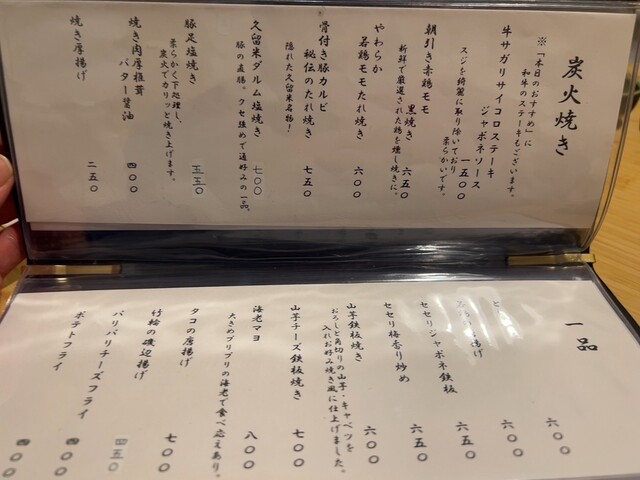 炭火焼き
※「本日のおすすめ」に
和牛のステーキもございます。
牛サガリサイコロステーキ
ジャポネソース
一五〇〇
スジを綺麗に取り除いており
柔らかいです。
朝引き赤鶏モモ
黒焼き
六五〇
新鮮で厳選された鶏を燻し焼きに。
やわらか
若鶏モモたれ焼き
六〇〇
骨付き豚カルビ
秘伝のたれ焼き
七五〇
隠れた久留米名物!
久留米ダルム塩焼き
七〇〇
豚の直腸。クセ強めで通好みの一品。
豚足塩焼き
五五〇
柔らかく下処理し、
炭火でカリッと焼き上げます。
焼き肉厚椎茸
バター醤油
四〇〇
焼き厚揚げ
二五〇
一品
六〇〇
と
六〇〇
揚げ
六五〇
セセリジャポネ鉄板
六五〇
セセリ梅香り炒め
六〇〇
山芋鉄板焼き
おろしと角切りの山芋・キャベツを
入れお好み焼き風に仕上げました。
山芋チーズ鉄板焼き
七〇〇
海老マヨ
八〇〇
大きめプリプリの海老で食べ応えあり。
タコの唐揚げ
七〇〇
竹輪の磯辺揚げ
四五〇
パリパリチーズフライ
四〇〇
ポテトフライ
四〇〇